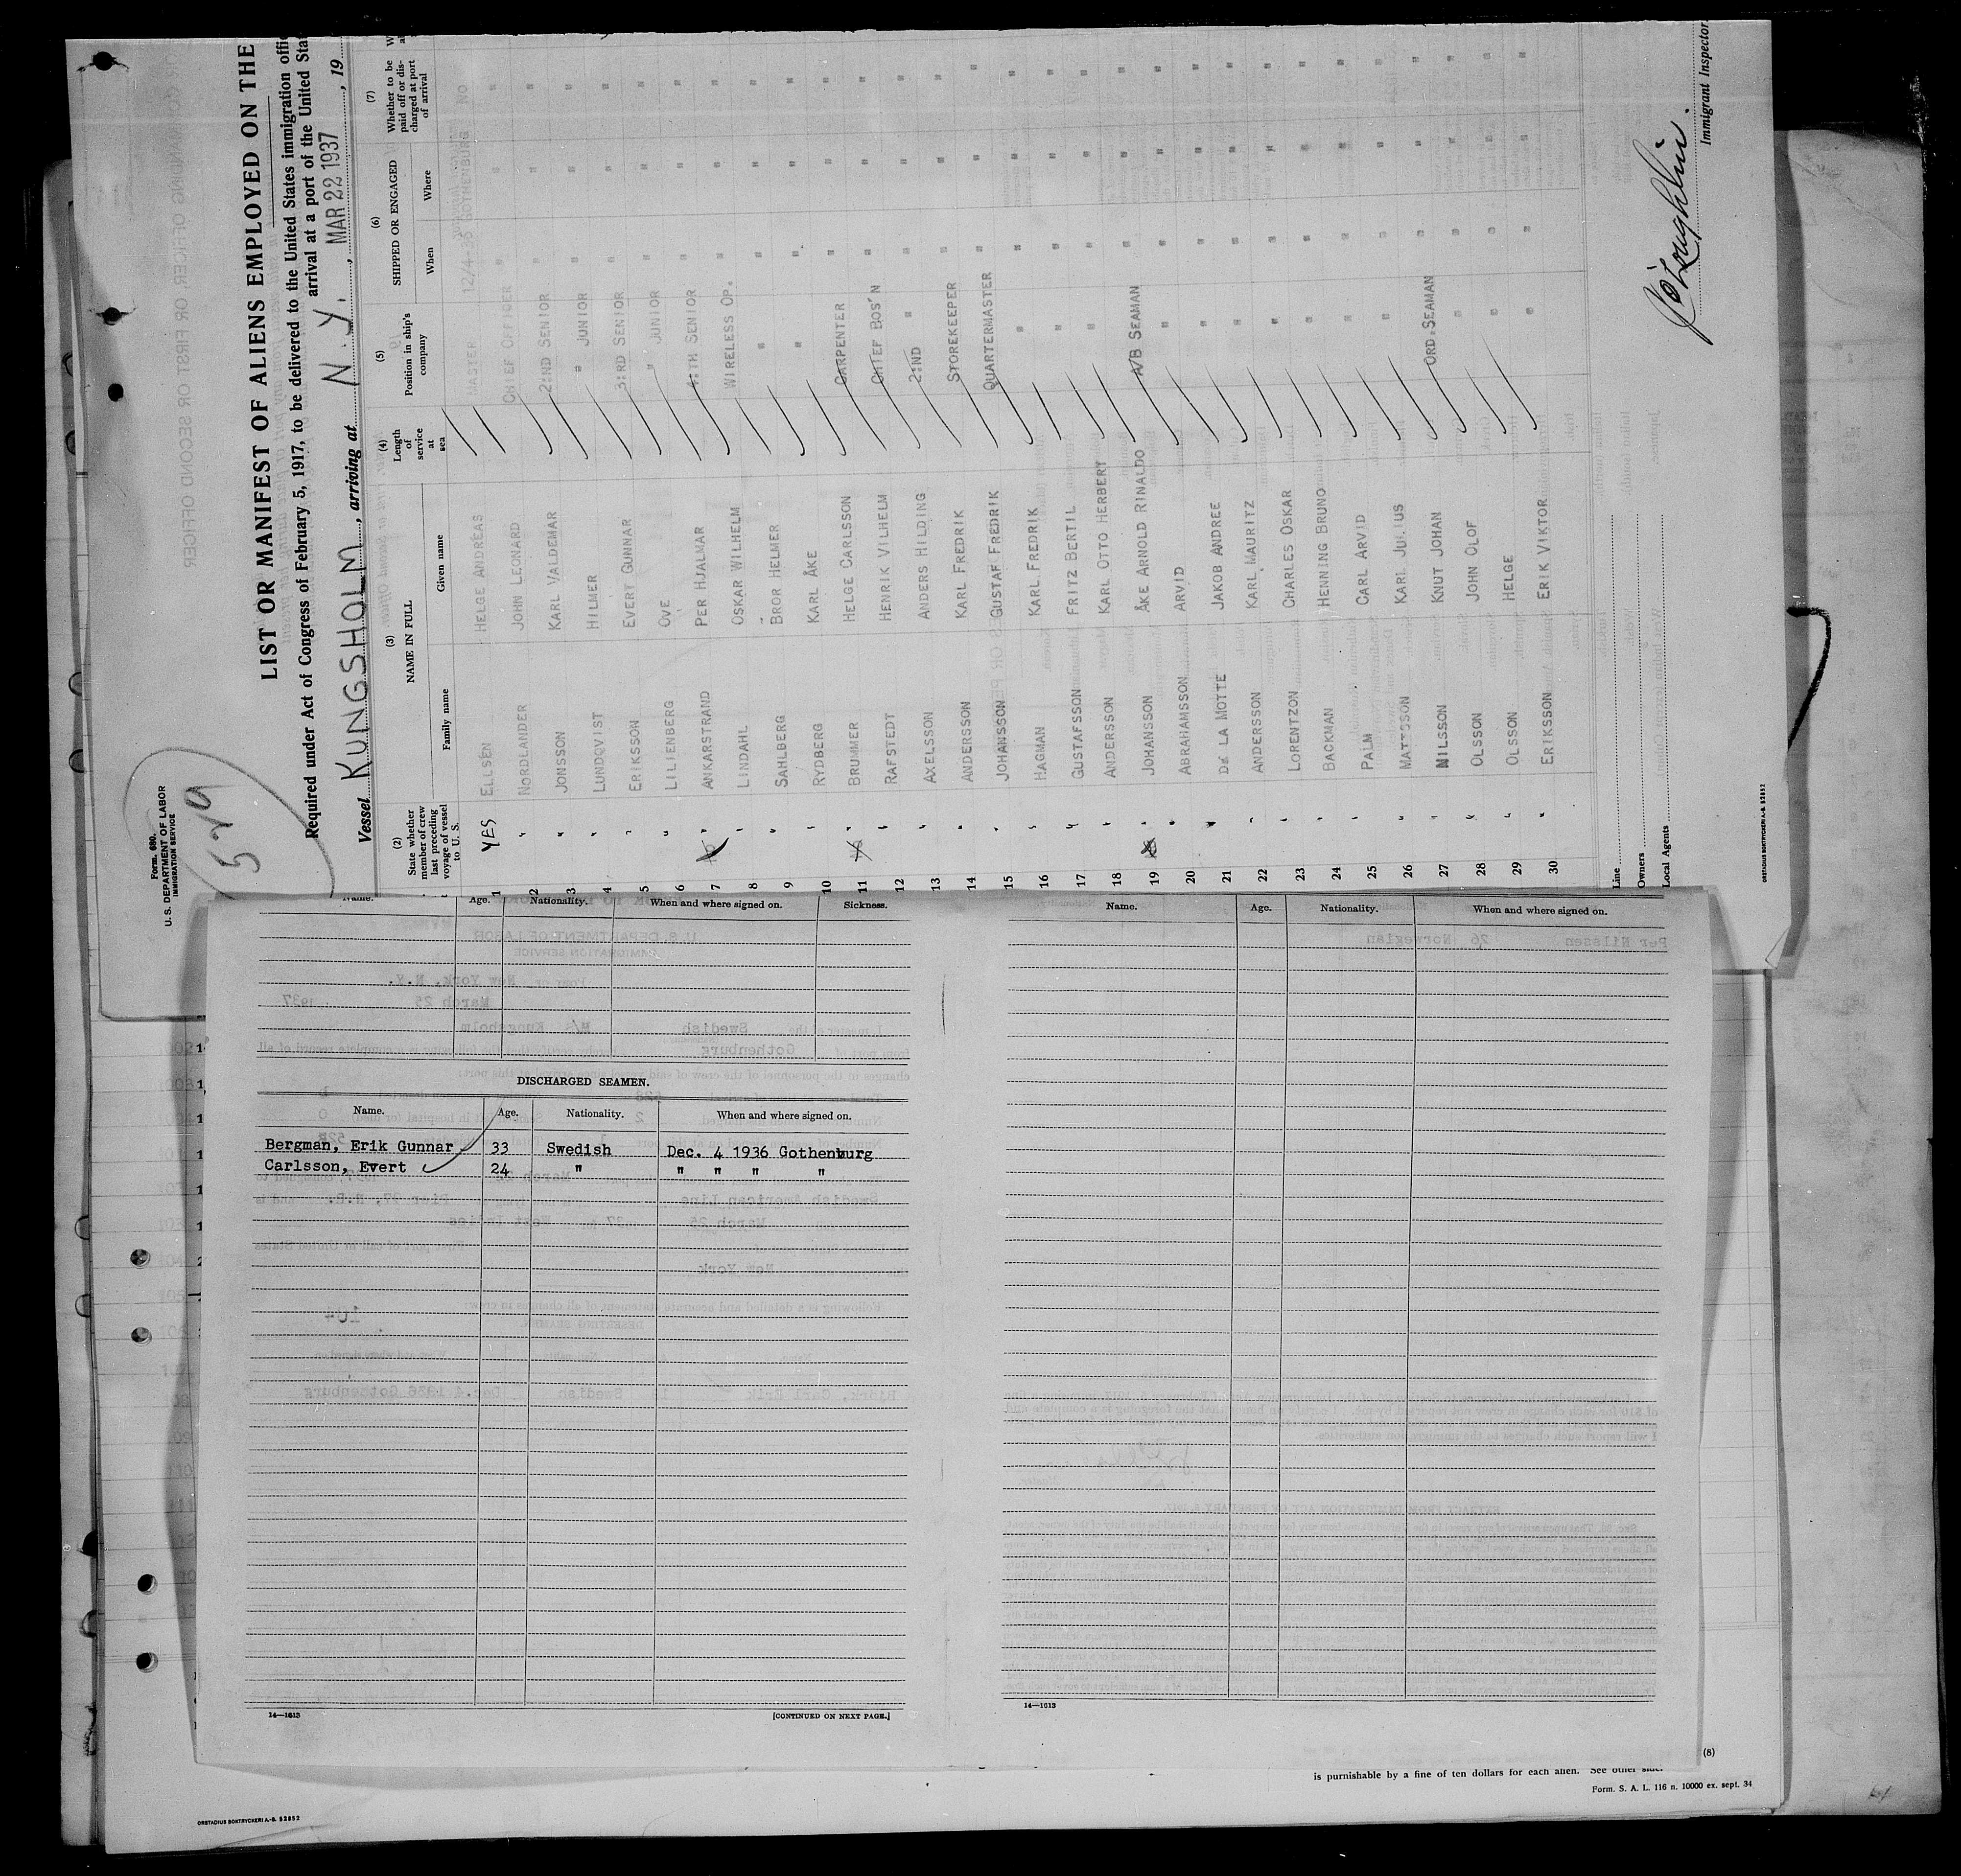 Form. 680.
U. S. DEPARTMENT OF LABOR
IMMIGRATION SERVICE
529
LIST OR MANIFEST OF ALIENS EMPLOYED ON THE
Required under Act of Congress of February 5, 1917, to be delivered to the United States immigration offic
arrival at a port of the United Sta
Vessel KUNGSHOLM, arriving at N. Y., MAR 22 1937, 19
(2) State whether member of crew last preceding voyage of vessel to U. S.
(3) NAME IN FULL
Family name Given name
(4) Length of service at sea
(5) Position in ship's company
(6) SHIPPED OR ENGAGED
When Where
(7) Whether to be paid off or discharged at port of arrival
1 YES ELLSEN HELGE ANDREAS MASTER 12/4-36 GOTHENBURG NO
2 " NORDLANDER JOHN LEONARD CHIEF OFFICER " " "
3 " JONSON KARL VALDEMAR 2:ND SENIOR " " "
4 " LUNDQVIST HILMER " JUNIOR " " "
5 " ERIKSSON EVERT GUNNAR 3:RD SENIOR " " "
6 " LILIENBERG OVE " JUNIOR " " "
7 " ANKARSTRAND PER HJALMAR 4:TH SENIOR " " "
8 " LINDAHL OSKAR WILHELM WIRELESS OP. " " "
9 " SAHLBERG BROR HELMER " " " "
10 " RYDBERG KARL ÅKE " " " "
11 " BRUMMER HELGE CARLSSON CARPENTER " " "
12 " RAFSTEDT HENRIK VILHELM CHIEF BOS'N " " "
13 " AXELSSON ANDERS HILDING 2:ND " " " "
14 " ANDERSSON KARL FREDRIK STOREKEEPER " " "
15 " JOHANSSON GUSTAF FREDRIK QUARTERMASTER " " "
16 " HAGMAN KARL FREDRIK " " " "
17 " GUSTAFSSON FRITZ BERTIL " " " "
18 " ANDERSSON KARL OTTO HERBERT " " " "
19 " JOHANSSON ÅKE ARNOLD RINALDO A/B SEAMAN " " "
20 " ABRAHAMSSON ARVID " " " "
21 " DE LA MOTTE JAKOB ANDREE " " " "
22 " ANDERSSON KARL MAURITZ " " " "
23 " LORENTZON CHARLES OSKAR " " " "
24 " BACKMAN HENNING BRUNO " " " "
25 " PALM CARL ARVID " " " "
26 " MATTSSON KARL JULIUS " " " "
27 " NILSSON KNUT JOHAN ORD.SEAMAN " " "
28 " OLSSON JOHN OLOF " " " "
29 " OLSSON HELGE " " " "
30 " ERIKSSON ERIK VIKTOR " " " "
Line
Owners
Local Agents
Immigrant Inspector.
ORSTADIUS BOKTRYCKERI A.-B. 52852
Name. Age. Nationality. When and where signed on. Sickness.
DISCHARGED SEAMEN.
Name. Age. Nationality. When and where signed on.
Bergman, Erik Gunnar 33 Swedish Dec. 4 1936 Gothenburg
Carlsson, Evert 24 " " " " "
14—1613
[CONTINUED ON NEXT PAGE.]
Name. Age. Nationality. When and where signed on.
14—1613
(8)
is purnishable by a fine of ten dollars for each alien. See other side.
Form. S. A. L. 116 n. 10000 ex. sept. 34
ORSTADIUS BOKTRYCKERI A.-B. 52852